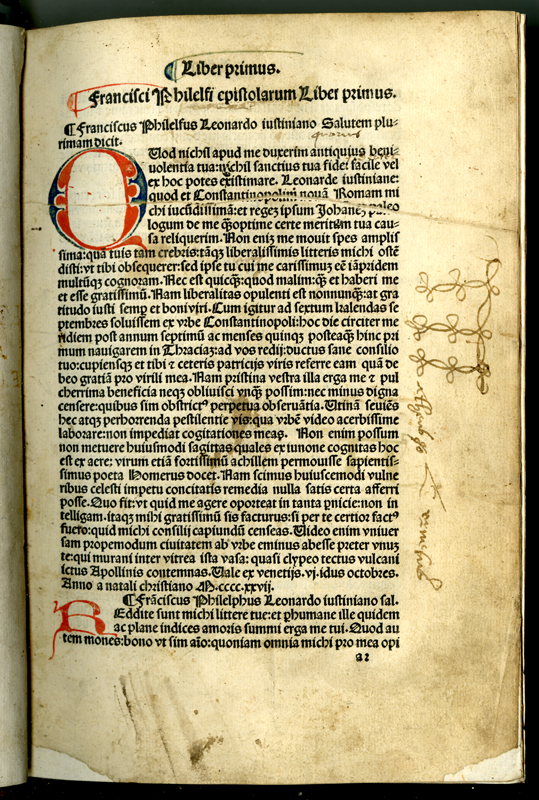 Liber primus.
Francisci Philelfi epistolarum Liber primus.
¶ Franciscus Philelfus Leonardo iustiniano Salutem plu-
rimam dicit.
QUod nichil apud me duxerim antiquius beni-
uolentia tua: nichil sanctius tua fide: facile vel
ex hoc potes existimare. Leonarde iustiniane:
quod et Constantinopolim nouā Romam mi
chi iucūdissimā: et regeʒ ipsum Johaneʒ paleo
logum de me qʒoptime certe meritum tua cau-
sa reliquerim. Non enim me mouit spes amplis
sima: qua tuis tam crebris: tāqʒ liberalissimis litteris michi ostē
disti: vt tibi obsequerer: sed ipse tu cui me carissimuʒ eē iāpridem
multūqʒ cognoram. Nec est quicqʒ: quod malim: qʒ et haberi me
et esse gratissimū. Nam liberalitas opulenti est nonnunqʒ: at gra
titudo iusti semp et boni viri. Cum igitur ad sextum kalendas se
ptembres soluissem ex vrbe Constantinopoli: hoc die circiter me
ridiem post annum septimū ac menses quinqʒ posteaqʒ hinc pri
mum nauigarem in Thraciaʒ: ad vos redij: ductus sane consilio
tuo: cupiensqʒ et tibi ⁊ ceteris patricijs viris referre eam quā de-
beo gratiā pro virili mea. Nam pristina vestra illa erga me ⁊ pul
cherrima beneficia neqʒ obliuisci vnqʒ possim: nec minus digna
censere: quibus sim obstrictꝰ perpetua obseruātia. Utinā seuiēs
hec atqʒ perhorrenda pestilentie vis: qua vrbē video acerbissime
laborare: non impediat cogitationes meas. Non enim possum
non metuere huiusmodi sagittas quales ex iunone cognitas hoc
est ex aere: virum etiā fortissimū achillem permouisse sapientis-
simus poeta Homerus docet. Nam scimus huiuscemodi vulne
ribus celesti impetu concitatis remedia nulla satis certa afferri
posse. Quo fit: vt quid me agere oporteat in tanta pnicie: non in
telligam. itaqʒ mihi gratissimū sis facturus: si per te certior factꝰ
fuero: quid michi consilij capiundū censeas. Uideo enim vniuer
sam propemodum ciuitatem ab vrbe eminus abesse preter vnuʒ
te: qui murani inter vitrea ista vasa: quasi clypeo tectus vulcani
ictus Apollinis contemnas. Uale ex venetijs. vj. idus octobres.
Anno a natali christiano M.cccc.xxvij.
¶ Frāciscus Philelphus Leonardo iustiniano sal.
REddite sunt michi littere tue: et phumane ille quidem
ac plane indices amoris summi erga me tui. Quod au
tem mones: bono vt sim aīo: quoniam omnia michi pro mea opi
a2